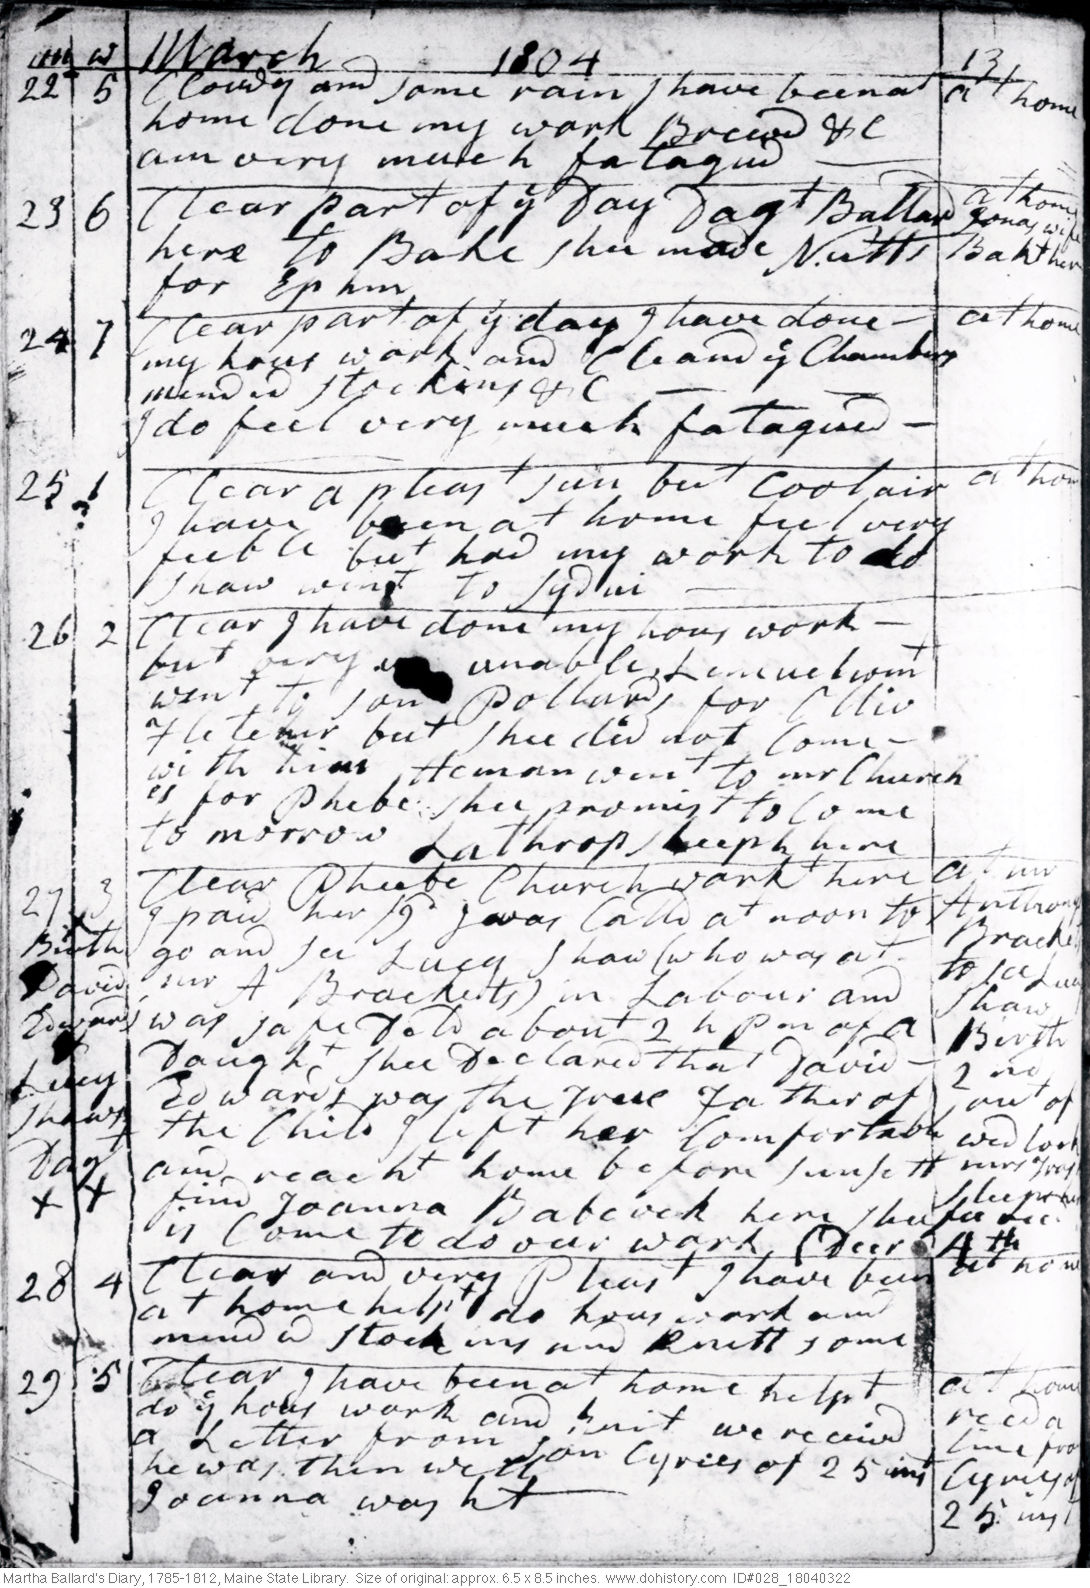 m w March 1804 13
22 5 Cloudy and some rain I have been at at home
home done my work Brewd &C
am very much fatagud
23 6 Clear part of ÿ Day Dagt Ballard at home
here to Bake shee made Nutts Jonas wife
for Ephm Bakt here
24 7 Clear part of ÿ day I have done at home
my hous work and Cleand ÿ Chambers
mended stockins &C
I do feel very much fatagued
25 1 Clear a pleast sun but Cool air at hom
I have been at home feel very
feeble but had my work to do
Shaw went to Sydni
26 2 Clear I have done my hous work
but very unable Lemuel
went to son Pollards for
Fletcher but shee did not Come
with him Heman went to mr Church
es for Phebe shee promist to Come
to morrow Lathrop sleeph here
27 3 Clear Pheebe Church workt here at mr
I paid her I was Calld at noon to Anthony
Birth go and see Lucy Shaw (who was at Bracket
David mr A Brackets) in Labour and to see Lucy
Edwards was safe Deld about 2 h pm of a Shaw
Daught shee Declared that David Birth
Lucy Edwards was the True Father of 2 nd
Shaws the Child I left her Comfortable out of
Dagt and reacht home before sunsett wedlock
+ + find Joanna Babcock here shee
is Come to do our work (Deer 4th
28 4 Clear and very Pleast I have been at home
at home helpt do hous work and
mended stockins and knitt some
29 5 Clear I have been at home helpt at home
do ÿ hous work and knit we received recd a
a Letter from son Cyrus of 25 inst line from
he was then well Cyrus of
Joanna washt 25 inst
Martha Ballard's Diary, 1785-1812, Maine State Library. Size of original: approx. 6.5 x 8.5 inches. www.dohistory.com ID#028_18040322